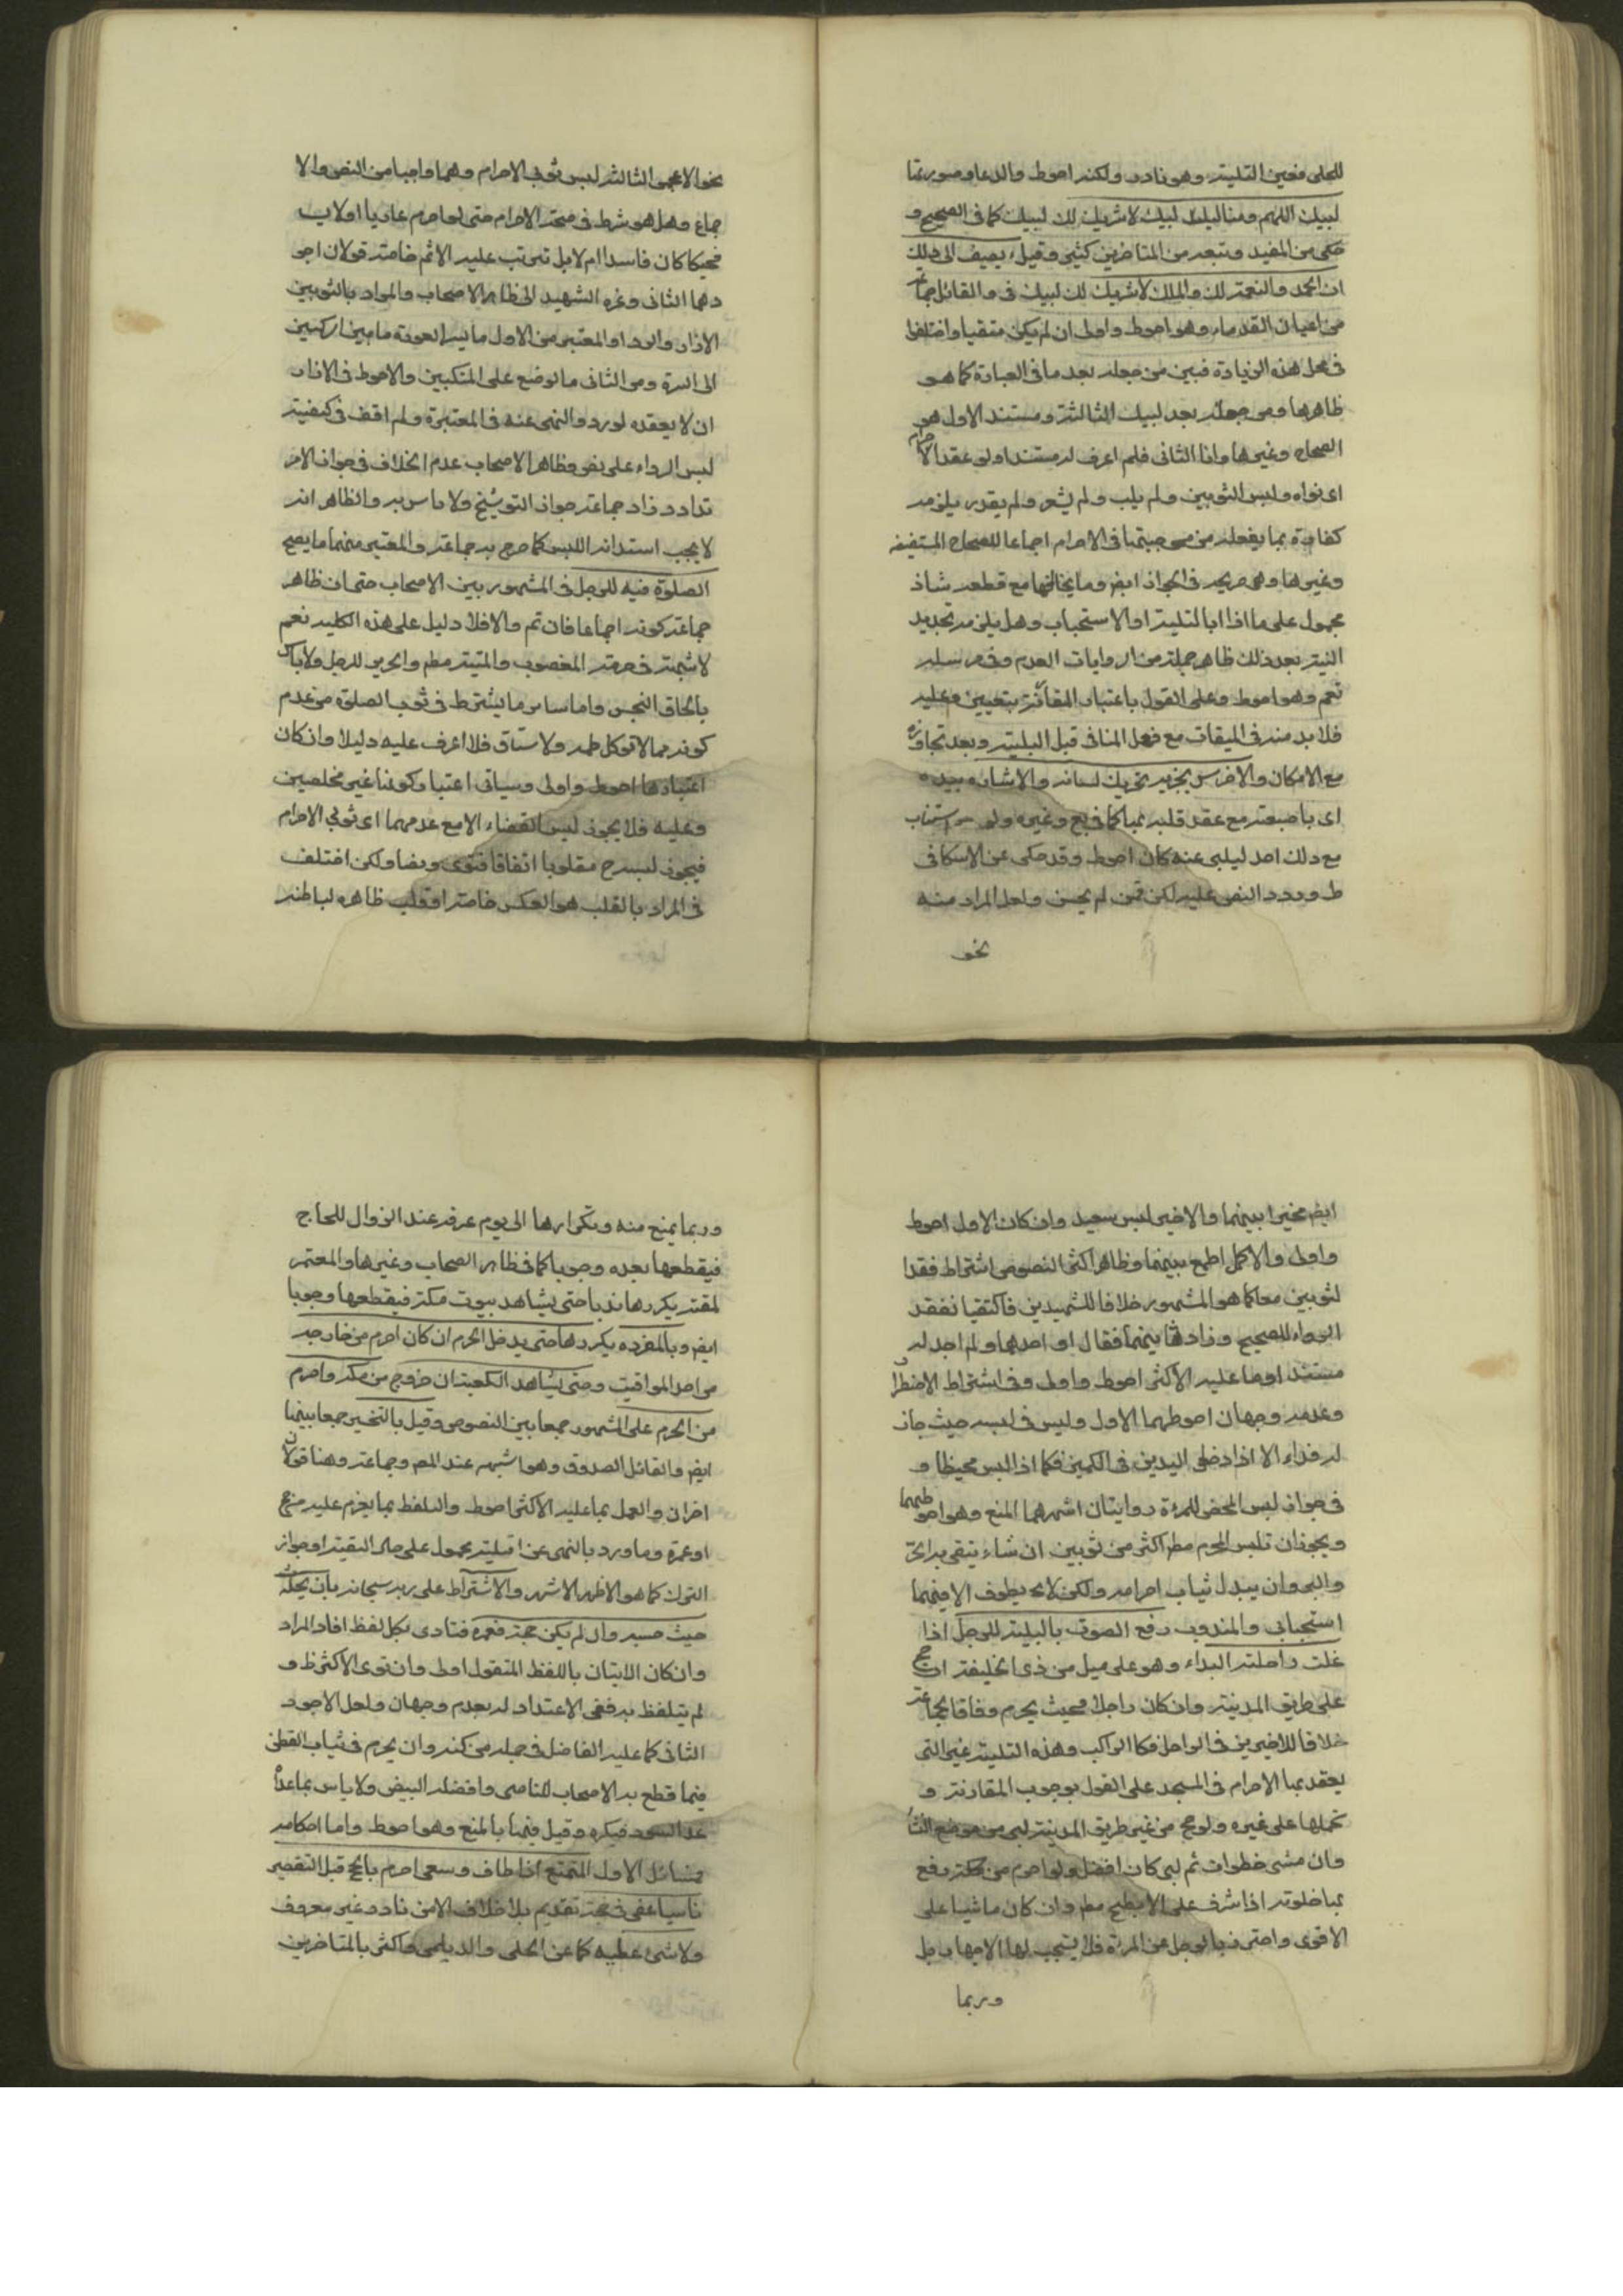 للحلى فعين التلبية وهو نادر ولكنه احوط والدعاء وصورتها
لبيك اللهم لبيك لبيك لا شريك لك لبيك كما فى الصحيح و
حكى من المفيد وتبعه من المتاخرين كثير وقيل يضيف الى ذلك
ان الحمد والنعمة لك والملك لا شريك لك لبيك فى والقائل جماعة
من اعيان القدماء وهو احوط واولى ان لم يكن متعينا واختلفوا
فى محل هذه الزيادة فبين من جعله بعد ما فى العبارة كما هو
ظاهرها ومن جعله بعد لبيك الثالثة ومستند الاول هو
الصحاح وغيرها واما الثانى فلم اعرف له مستندا ولو عقد الاحرام
اى نواه ولبس الثوبين ولم يلب ولم يشعر ولم يقلد لم يلزمه
كفارة بما يفعله من موجبتها فى الاحرام اجماعا للصحاح المستفيضة
وغيرها وهى صريحة فى الجواز ايض وما يخالفها مع قطعه شاذ
محمول على ما اذا بالتلبية او الاستحباب وهل يلزمه تجديد
النية بعد ذلك ظاهر جملة من الروايات العدم وفى مرسلة
نعم وهو احوط وعلى القول باعتبار المقارنة يتعين وعليه
فلا بد منه فى الميقات مع فعل المنافى قبل التلبية وبعد تجاوزه
مع الامكان والاخرس يجزيه تحريك لسانه والاشارة بيده
اى باصبعه مع عقد قلبه بها كما فى يع وغيره ولو استناب
مع ذلك احد ليلبى عنه كان احوط وقد حكى عن الاسكافى
ط وورد النص عليه لكن فمن لم يحسن ولعل المراد منه
نحو
نحو الاعجمى الثالث لبس ثوبى الاحرام وهما واجبا من النص والا
جماع وهل هو شرط فى صحة الاحرام حتى لو احرم عاريا او لاب
مخيكا كان فاسدا ام لا بل ترتب عليه الاثم خاصة قولان اجو
دهما الثانى وعزه الشهيد الى ظاهر الاصحاب والمراد بالثوبين
الازار والرداء والمعتبر من الاول ما يستر العورة ما بين الركبتين
الى السرة ومن الثانى ما يوضع على المنكبين والاحوط فى الازار
ان لا يعقده لورود النهى عنه فى المعتبرة ولم اقف فى كيفية
لبس الرداء على نص وظاهر الاصحاب عدم الخلاف فى جواز الار
تداد وزاد جماعة جواز التوشيح ولا باس به والظاهر انه
لا يجب استدامة اللبس كما صرح به جماعة والمعتبر منهما ما يصح
الصلوة فيه للرجل فى المشهور بين الاصحاب حتى ان ظاهر
جماعة كونه اجماعا فان تم والا فلا دليل على هذه الكلية نعم
لا شبهة فى حرمة المغصوب والميتة مطم والحرير للرجل ولا باس
بالحاق النجس واما سائر ما يشترط فى ثوب الصلوة من عدم
كونه مما لا توكل لحمه ولا ساتر فلا اعرف عليه دليلا وان كان
اعتبارها احوط واولى وسياتى اعتبار كونها غير مخلصين
وعليه فلا يجوز لبس القضاء الا مع عدمهما اى ثوبى الاحرام
فيجوز لبسه ح مقلوبا اتفاقا فتوى ونصا ولكن اختلف
فى المراد بالقلب هو العكس خاصة او قلب ظاهره لباطنه
ايض مخيرا بينهما والاخير ليس ببعيد وان كان الاول احوط
واولى والاكمل الجمع بينهما وظاهر اكثر النصوص اشتراط فقدا
لثوبين معا كما هو المشهور خلافا للشهيدين فاكتفيا بفقد
الرداء للصحيح وزاد ثانيهما فقال او احدهما ولم اجد له
مستندا وما عليه الاكثر احوط واولى وفى اشتراط الاضطرار
وعدمه وجهان احوطهما الاول وليس فى لبسه حيث جاز
له فداء الا اذا دخل اليدين فى الكمين فكما اذا لبس مخيطا و
فى جواز لبس المخيط للمرءة روايتان اشهرهما المنع وهو احوطهما
ويجوز ان تلبس المحرم مطم اكثر من ثوبين ان شاء يتقى به الحر
والبرد وان يبدل ثياب احرامه ولكن لا يطوف الا فيهما
استحبابى والمندوب رفع الصوت بالتلبية للرجل اذا
علت راحلته البيداء وهو على ميل من ذى الحليفة ان حج
على طريق المدينة وان كان راجلا فحيث يحرم وفاقا لجماعة
خلافا للاخيرين فى الراجل فكا الراكب وهذه التلبية غير التى
يعقد بها الاحرام فى المسجد على القول بوجوب المقارنة و
تحملها على غيره ولو حج من غير طريق المدينة لبى من موضعه
وان مشى خطوات ثم لبى كان افضل ولو احرم من مكة رفع
بها صوته اذا اشرف على الابطح مطم وان كان ماشيا على
الاقوى واحترز بالرجل عن المرءة فلا يستحب لها الاجهار بل
وربما
وربما يمنع منه وتكرارها الى يوم عرفة عند الزوال للحاج
فيقطعها بعده وجوبا كما فى ظاهر الصحاب وغيرها والمعتمر
لمتعة يكررها ندبا حتى يشاهد بيوت مكة فيقطعها وجوبا
ايض وبالمفردة يكررها حتى يدخل الحرم ان كان احرم من خارجه
من احد المواقيت وحتى يشاهد الكعبة ان خرج من مكة واحرم
من الحرم على المشهور جمعا بين النصوص وقيل بالتخيير جمعا بينها
ايض والقائل الصدوق وهو اشبه عند المص وجماعة وهنا قولان
اخران والعمل بما عليه الاكثر احوط والتلفظ بما يحرم عليه من حج
او عمرة وما ورد بالنهى عن التلبية محمول على حال التقية او جواز
الترك كما هو الاظهر الاشهر والاشتراط على ربه سبحانه بان يحله
حيث حبسه وان لم يكن حجة فعمرة فتادى بكل لفظ افاد المراد
وان كان الاتيان باللفظ المنقول اولى وان نوى الاكثر ظ و
لم يتلفظ به ففى الاعتداد له بعدم وجهان ولعل الاجود
الثانى كما عليه الفاضل فى جملة من كتبه وان يحرم فى ثياب القطن
فيما قطع به الاصحاب للتاسى وافضله البيض ولا باس بما عدا
عدا السود فيكره وقيل فيها بالمنع وهو احوط واما احكامه
فمسائل الاول المتمتع اذا طاف وسعى احرم بالحج قبل التقصير
ناسيا عفى صحة تقديم بلا خلاف الا من نادر غير معروف
ولا شى عليه كما عن الحلى والديلمى واكثر بالمتاخرين